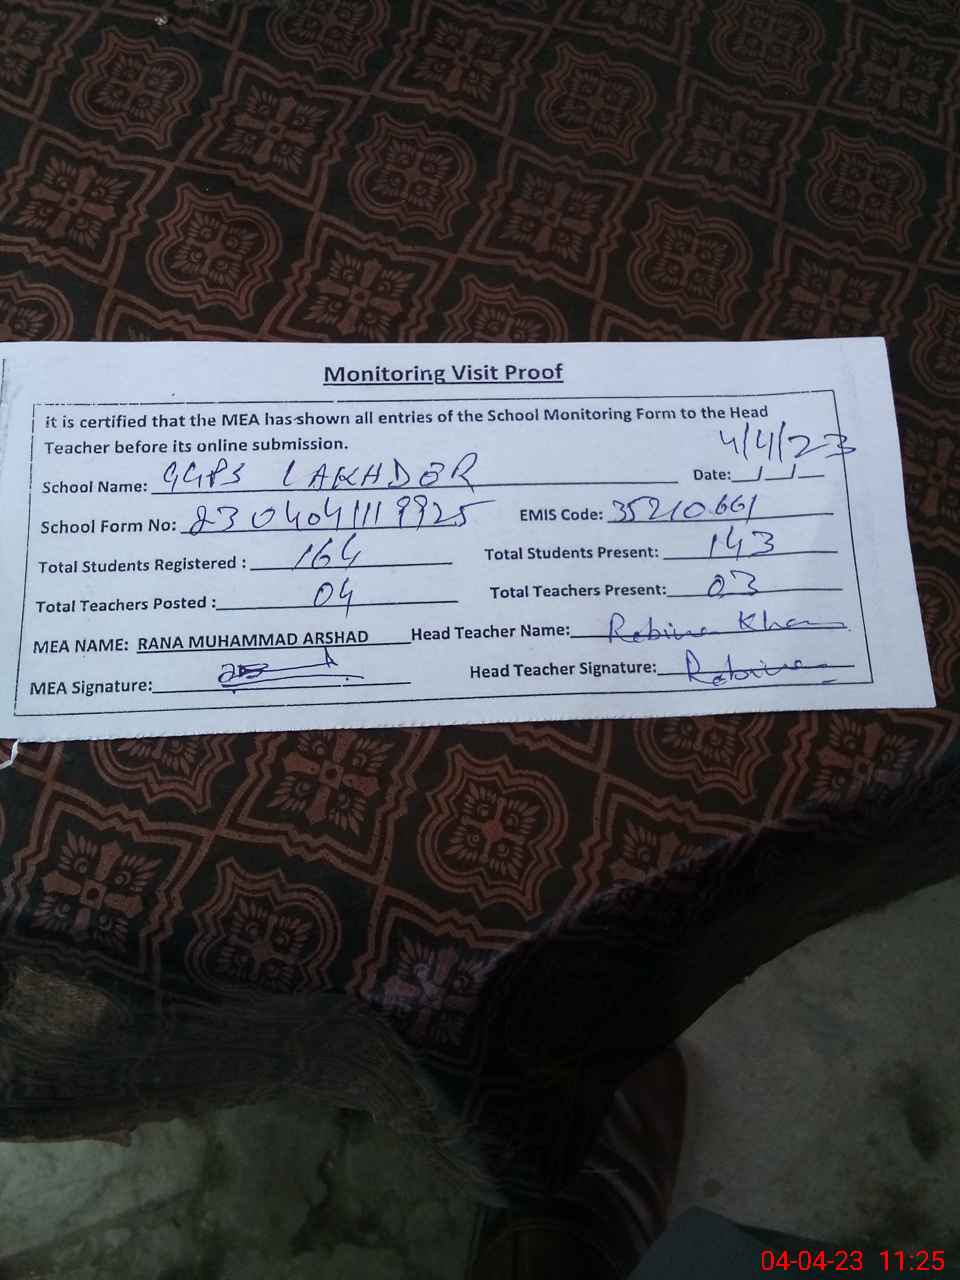 Monitoring Visit Proof
it is certified that the MEA has shown all entries of the School Monitoring Form to the Head
Teacher before its online submission.
School Name: GGPS LAKHDER Date: 4/4/23
School Form No: 2304041119925 EMIS Code: 35210661
Total Students Registered : 164 Total Students Present: 143
Total Teachers Posted : 04 Total Teachers Present: 03
MEA NAME: RANA MUHAMMAD ARSHAD Head Teacher Name: Robina Khan
MEA Signature: Head Teacher Signature: Robina
04-04-23 11:25